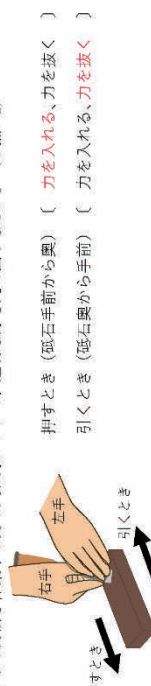 押すとき（砥石手前から奥）〔 力を入れる、力を抜く 〕
引くとき（砥石奥から手前）〔 力を入れる、力を抜く 〕
右手
左手
すとき
引くとき